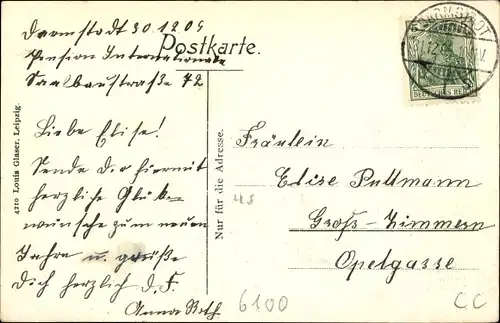 Darmstadt 30.12.05
Pension Internationale
Saalbaustraße 72
Postkarte.
DARMSTADT
DEUTSCHES REICH
Liebe Elise!
Sende Dir hiermit
herzliche Glück-
wünsche zum neuen
Jahre u. grüße
Dich herzlich d. F.
Anna Roth
4210 Louis Glaser, Leipzig.
Nur für die Adresse.
Fräulein
Elise Pullmann
Groß-Zimmern
Opelgasse
6100
CC